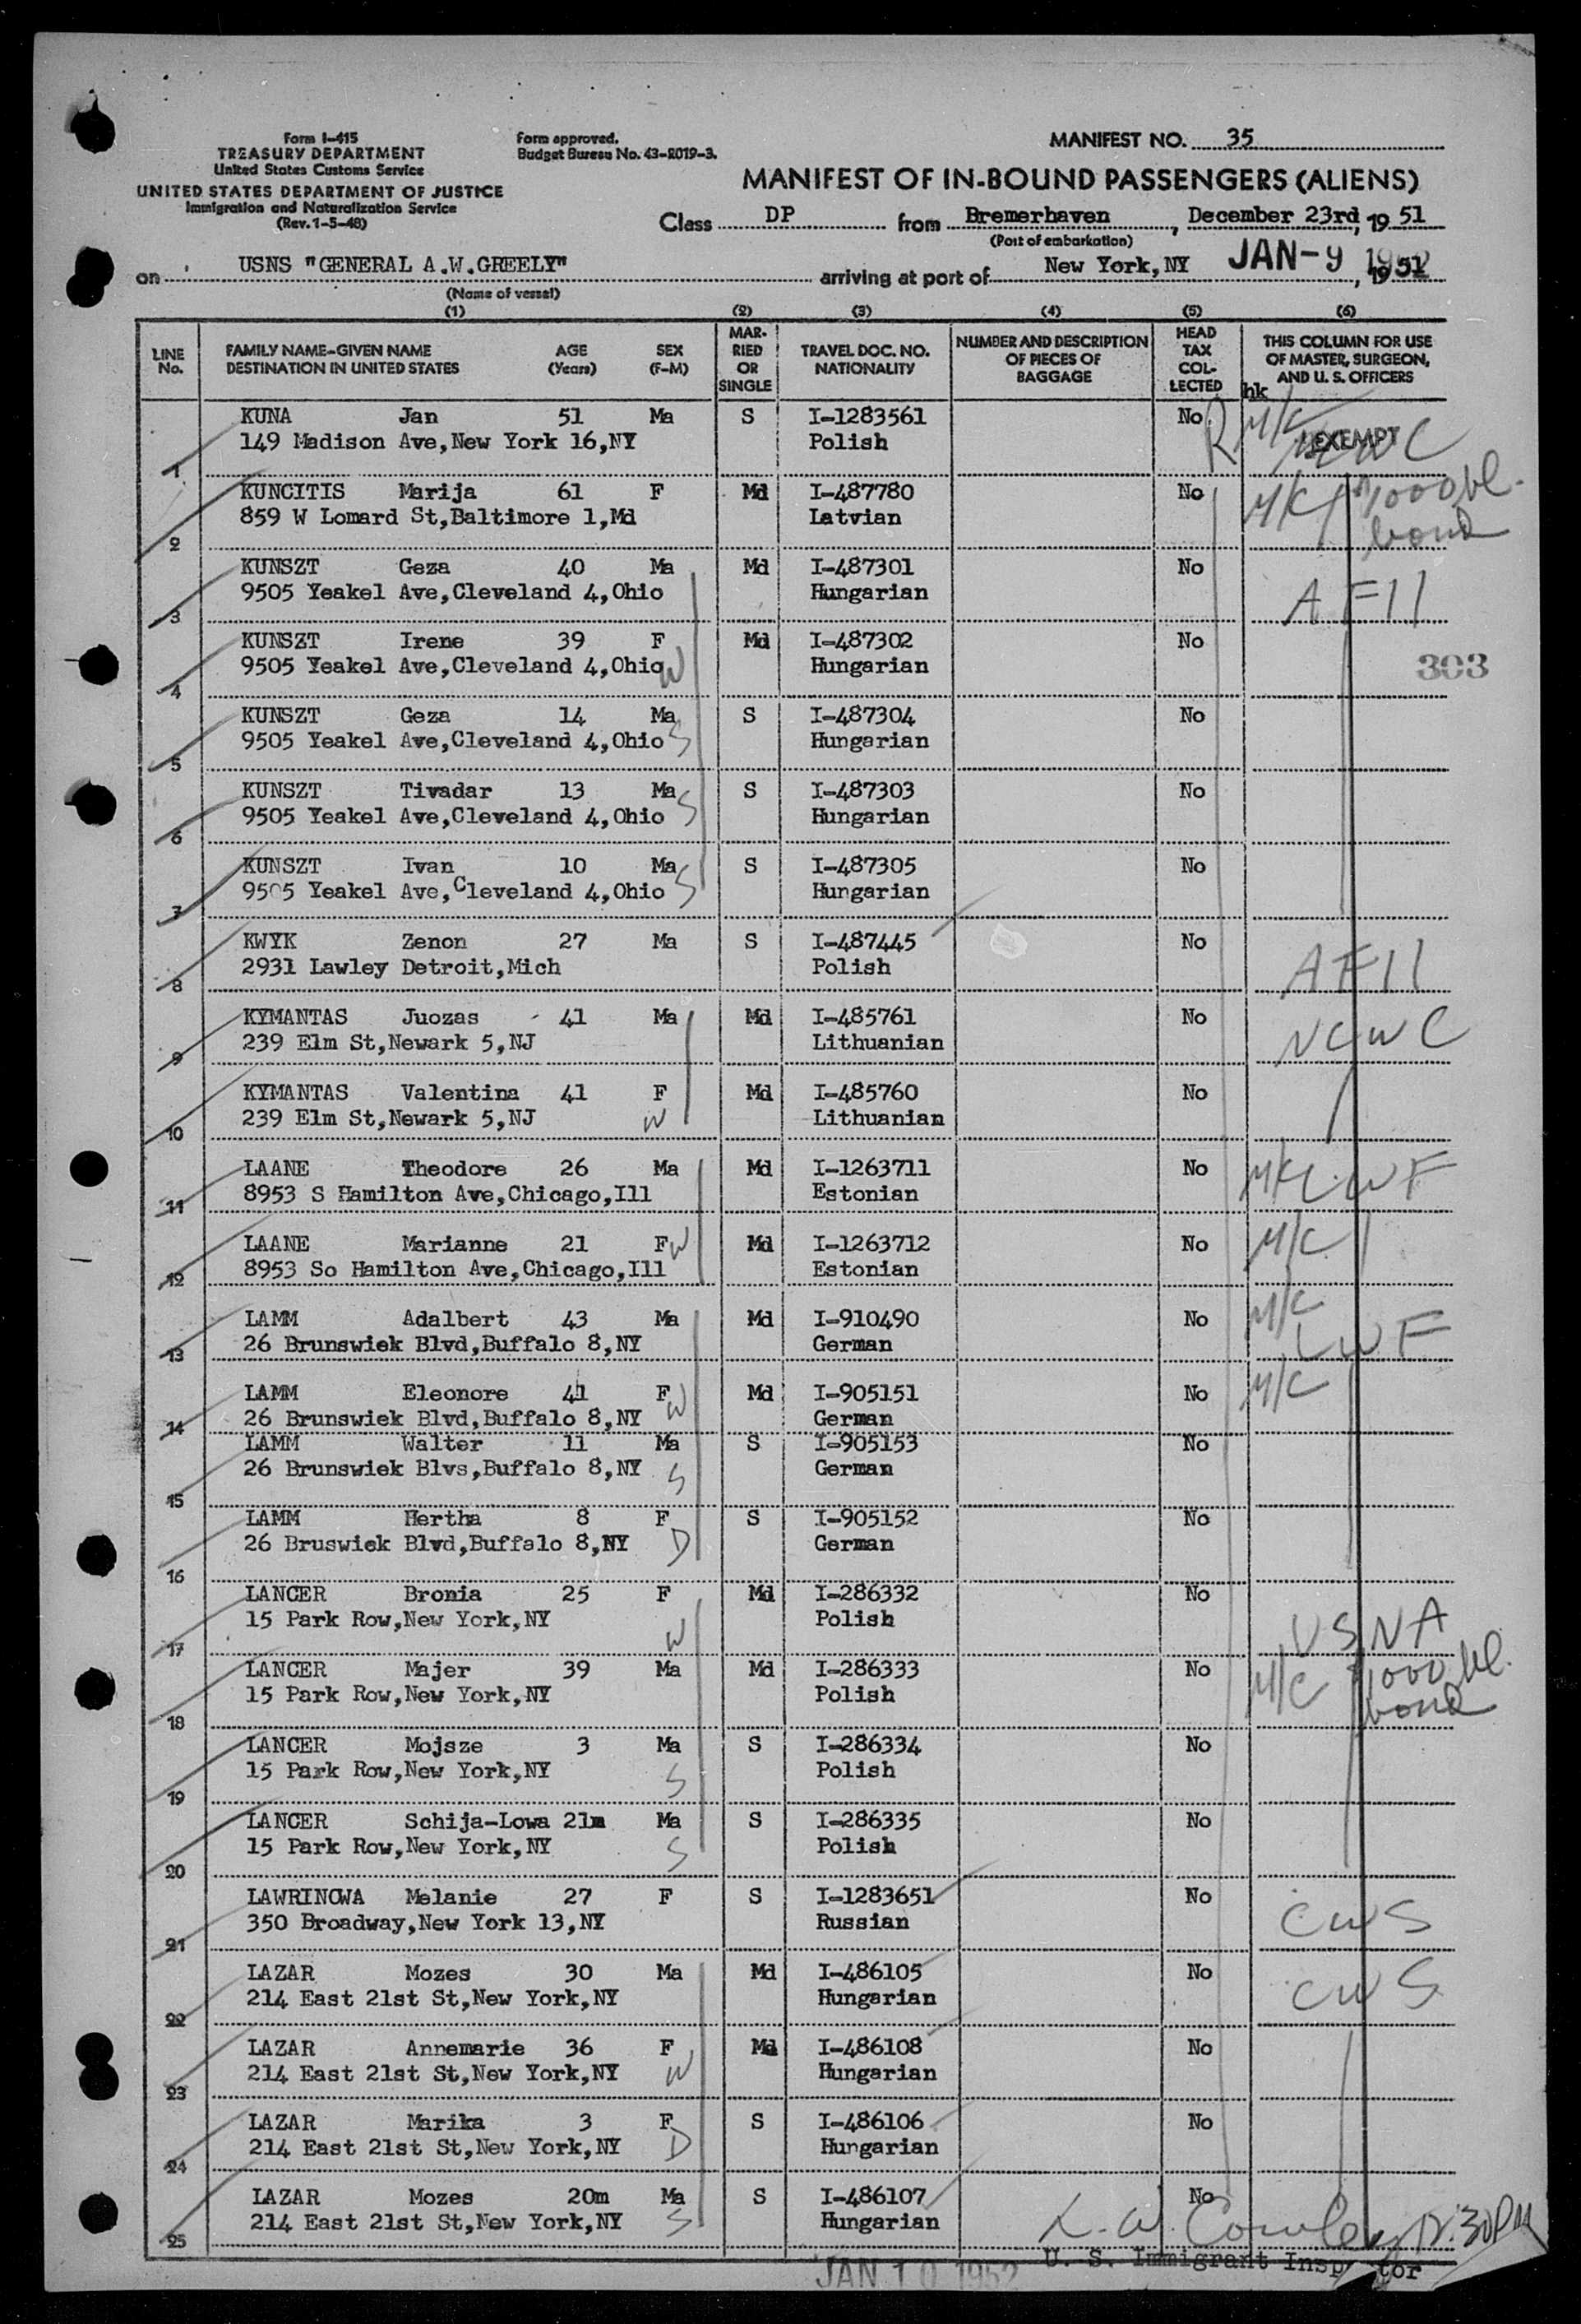 Form I-415
TREASURY DEPARTMENT
United States Customs Service
UNITED STATES DEPARTMENT OF JUSTICE
Immigration and Naturalization Service
(Rev. 1-5-48)
Form approved.
Budget Bureau No. 43-R019-3.
MANIFEST NO. 35
MANIFEST OF IN-BOUND PASSENGERS (ALIENS)
Class DP from Bremerhaven, December 23rd, 19 51
(Port of embarkation)
on USNS "GENERAL A.W.GREELY" arriving at port of New York, NY JAN-9 1952, 19 51
(Name of vessel)
(1) (2) (3) (4) (5) (6)
LINE No. FAMILY NAME-GIVEN NAME DESTINATION IN UNITED STATES AGE (Years) SEX (F-M) MARRIED OR SINGLE TRAVEL DOC. NO. NATIONALITY NUMBER AND DESCRIPTION OF PIECES OF BAGGAGE HEAD TAX COLLECTED THIS COLUMN FOR USE OF MASTER, SURGEON, AND U. S. OFFICERS
hk
KUNA Jan 51 Ma S I-1283561 No R M/C
149 Madison Ave,New York 16,NY Polish EXEMPT NCWC
1
KUNCITIS Marija 61 F Md I-487780 No 1000 bl.
859 W Lomard St,Baltimore 1,Md Latvian bond
2
KUNSZT Geza 40 Ma Md I-487301 No
9505 Yeakel Ave,Cleveland 4,Ohio Hungarian AFII
3
KUNSZT Irene 39 F Md I-487302 No
9505 Yeakel Ave,Cleveland 4,Ohio W Hungarian 303
4
KUNSZT Geza 14 Ma S I-487304 No
9505 Yeakel Ave,Cleveland 4,Ohio S Hungarian
5
KUNSZT Tivadar 13 Ma S I-487303 No
9505 Yeakel Ave,Cleveland 4,Ohio S Hungarian
6
KUNSZT Ivan 10 Ma S I-487305 No
9505 Yeakel Ave,Cleveland 4,Ohio S Hungarian
7
KWYK Zenon 27 Ma S I-487445 No
2931 Lawley Detroit,Mich Polish AFII
8
KYMANTAS Juozas 41 Ma Md I-485761 No
239 Elm St,Newark 5,NJ Lithuanian NCWC
9
KYMANTAS Valentina 41 F Md I-485760 No
239 Elm St,Newark 5,NJ W Lithuanian
10
LAANE Theodore 26 Ma Md I-1263711 No LWF
8953 S Hamilton Ave,Chicago,Ill Estonian
11
LAANE Marianne 21 F W Md I-1263712 No M/C
8953 So Hamilton Ave,Chicago,Ill Estonian
12
LAMM Adalbert 43 Ma Md I-910490 No M/C
26 Brunswiek Blvd,Buffalo 8,NY German LWF
13
LAMM Eleonore 41 F Md I-905151 No M/C
26 Brunswiek Blvd,Buffalo 8,NY W German
14
LAMM Walter 11 Ma S I-905153 No
26 Brunswiek Blvs,Buffalo 8,NY S German
15
LAMM Hertha 8 F S I-905152 No
26 Bruswiek Blvd,Buffalo 8,NY D German
16
LANCER Bronia 25 F Md I-286332 No
15 Park Row,New York,NY W Polish USNA
17
LANCER Majer 39 Ma Md I-286333 No M/C 1000 bl.
15 Park Row,New York,NY Polish bond
18
LANCER Mojsze 3 Ma S I-286334 No
15 Park Row,New York,NY S Polish
19
LANCER Schija-Lowa 21m Ma S I-286335 No
15 Park Row,New York,NY S Polish
20
LAWRINOWA Melanie 27 F S I-1283651 No
350 Broadway,New York 13,NY Russian CWS
21
LAZAR Mozes 30 Ma Md I-486105 No
214 East 21st St,New York,NY Hungarian CWS
22
LAZAR Annemarie 36 F Md I-486108 No
214 East 21st St,New York,NY W Hungarian
23
LAZAR Marika 3 F S I-486106 No
214 East 21st St,New York,NY D Hungarian
24
LAZAR Mozes 20m Ma S I-486107 No
214 East 21st St,New York,NY S Hungarian 12:30PM
25
U. S. Immigrant Inspector
JAN 10 1952